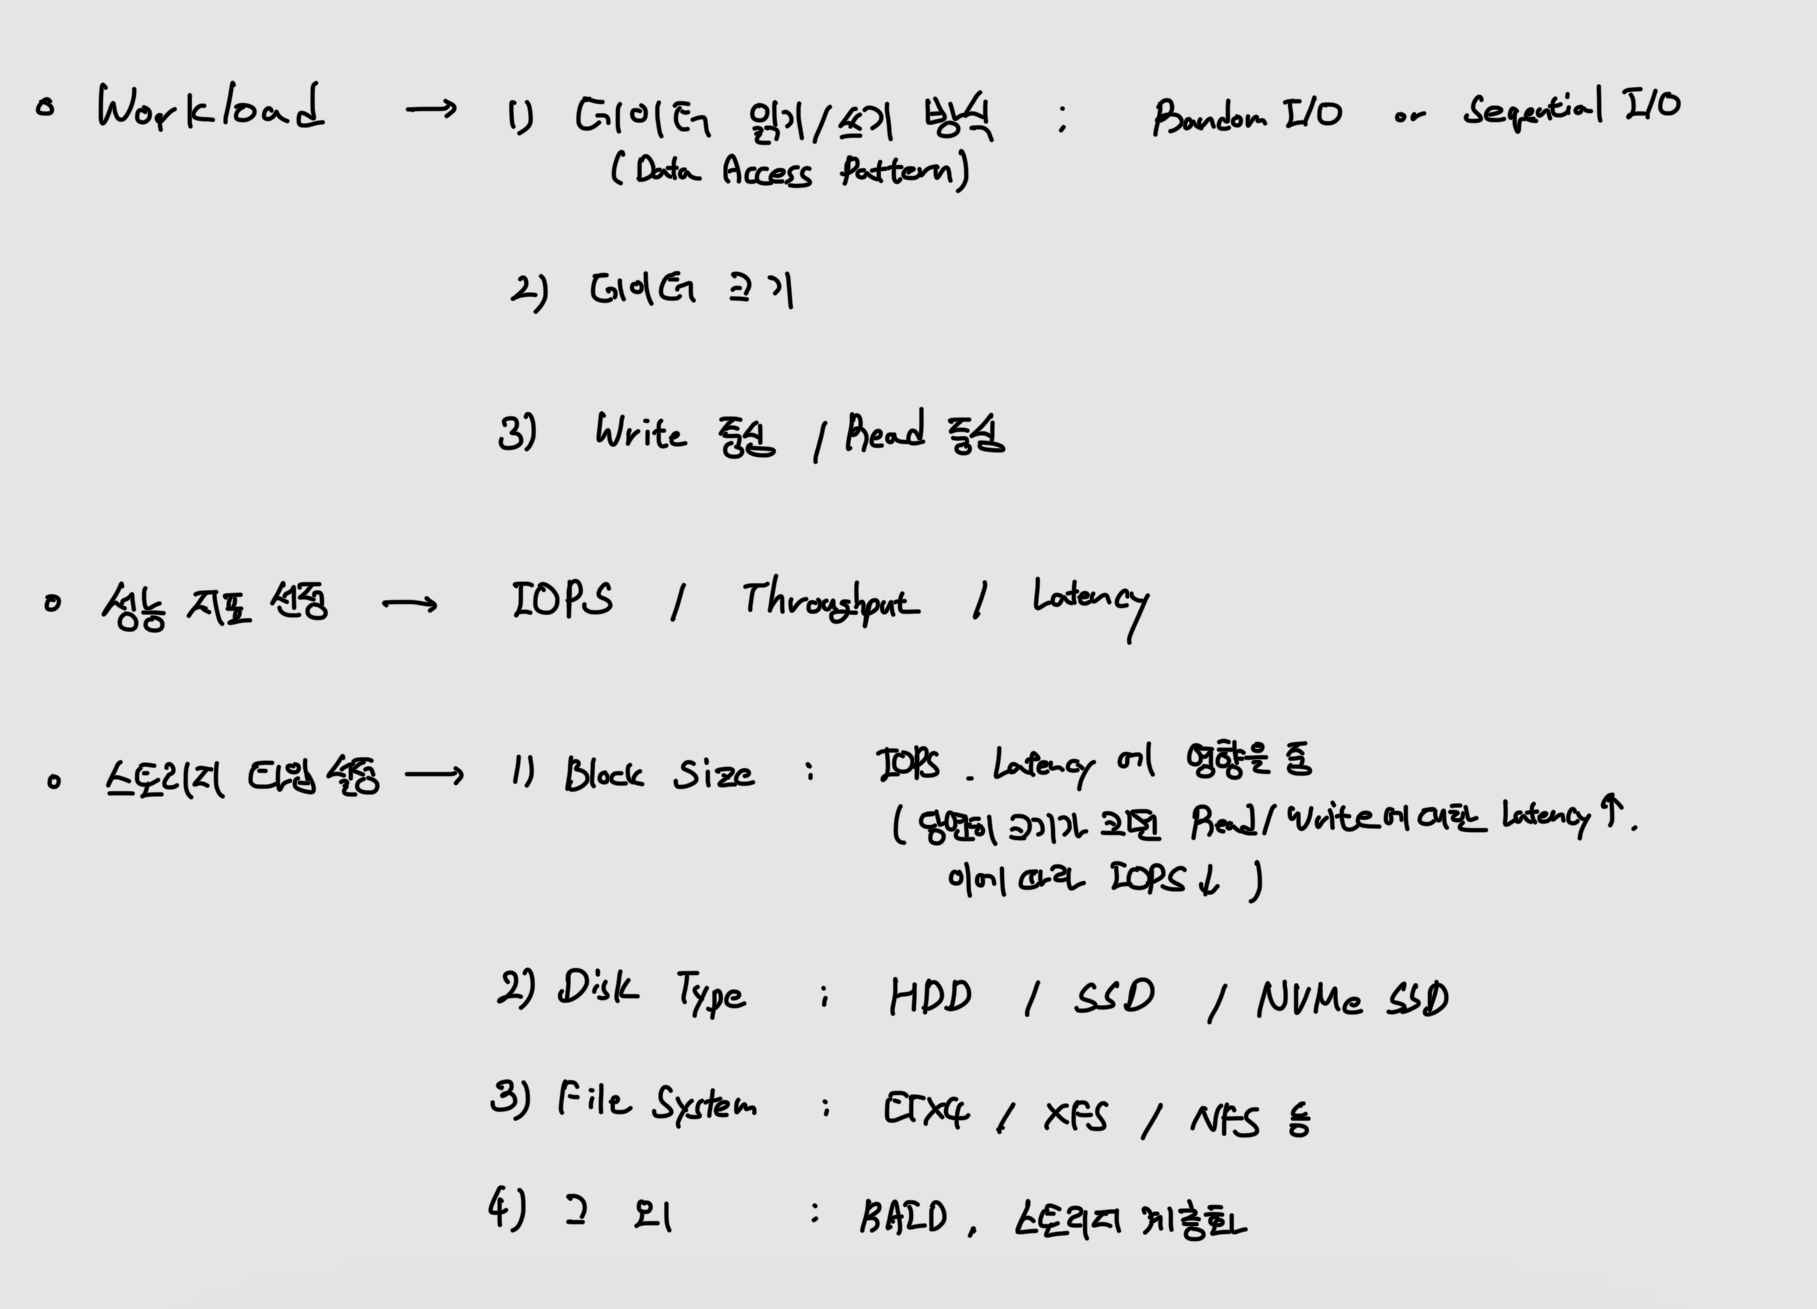 o Workload → 1) 데이터 읽기/쓰기 방식 : Random I/O or Seqential I/O
(Data Access Pattern)
2) 데이터 크기
3) Write 중심 / Read 중심
o 성능 지표 선정 → IOPS / Throughput / Latency
o 스토리지 타입 설정 → 1) Block Size : IOPS . Latency 에 영향을 줌
(당연히 크기가 크면 Read/Write에 대한 Latency↑.
이에 따라 IOPS↓ )
2) Disk Type : HDD / SSD / NVMe SSD
3) File System : ETX4 / XFS / NFS 등
4) 그 외 : RAID , 스토리지 계층화